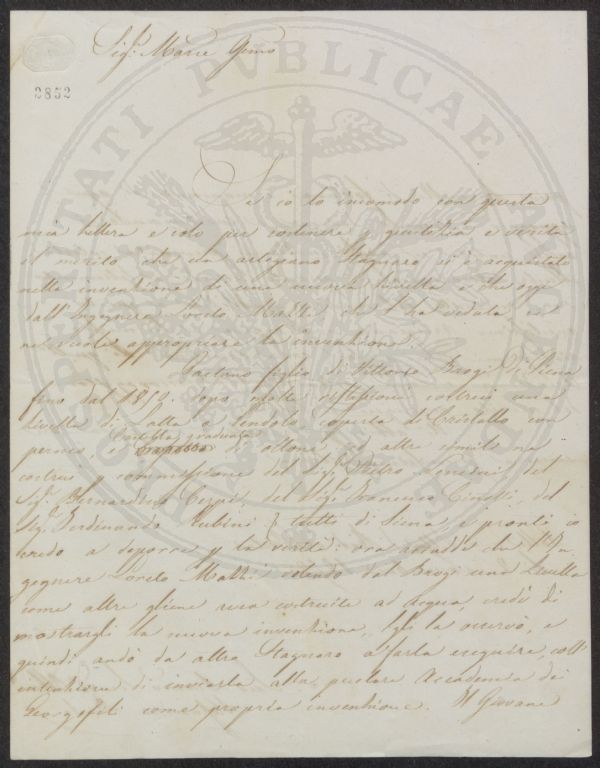 Sig.r Marie Gmo
2852
Se io lo incomodo con questa
mia lettera e solo per sostenere p giustizia e verità
il merito che un artigiano Stagnaro si è acquistato
nella invenzione di una nuova livella e che oggi
dall'Ingegnere Loreto Mazzi che l'ha veduta se
ne vuole appropriare la invenzione.
Gaetano figlio di Vittorio Brogi di Siena
fino dal 1850. dopo molte riflessioni costruì una
Livella di Latta a Pendolo coperta di Cristallo con
graduato
perneo, e di ottone, ed altre simili ne
costruì p commissione del Sig.r Pietro del
Sig.r Bernardino Carpi, del Sig.r Francesco Cinotti, del
Sig.r Ferdinando Rubini tutti di Siena e pronti io
credo a deporre p la verità: ora accadde che l'In
gegnere Loreto Mazzi volendo dal Brogi una Livella
come altre gliene avea costruite ad acqua, credè di
mostrargli la nuova invenzione, Egli la osservò, e
quindi andò da altro Stagnaro a farla eseguire, coll'
intenzione di inviarla alla Accademia dei
Georgofili come propria invenzione. Il Giovane
SOSPITATI PVBLICAE